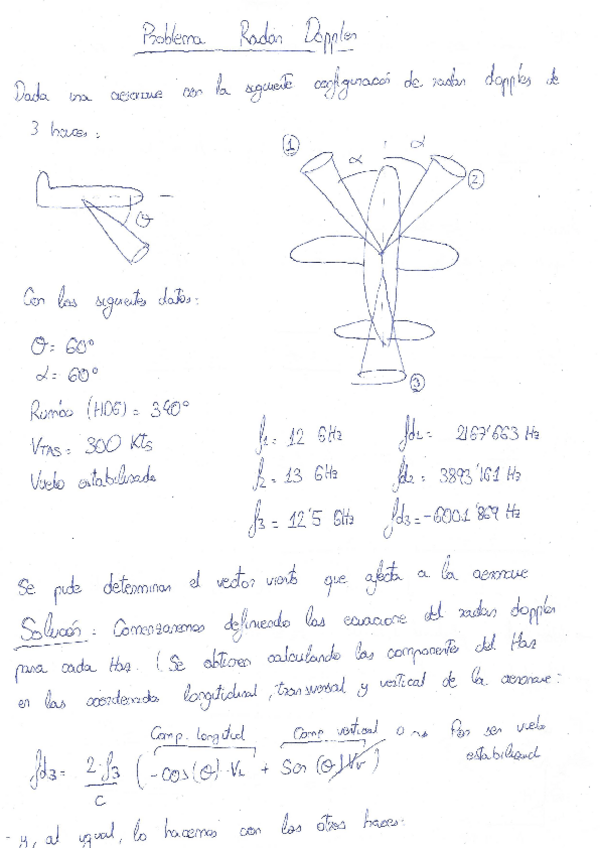 Problema Radar Doppler
Dada una aeronave con la siguiente configuración de radar doppler de
3 haces:
① α α ②
θ
③
Con los siguientes datos:
θ = 60º
α = 60º
Rumbo (HDG) = 340º
VTAS = 300 KTS
Vuelo estabilizado
f1 = 12 GHz fd1 = 2167'663 Hz
f2 = 13 GHz fd2 = 3893'161 Hz
f3 = 12'5 GHz fd3 = -6001'869 Hz
Se pide determinar el vector viento que afecta a la aeronave
Solución: Comenzaremos definiendo las ecuaciones del radar doppler
para cada Haz. (Se obtienen calculando las componentes del Haz
en las coordenadas longitudinal, transversal y vertical de la aeronave:
Comp. longitud Comp. vertical 0 Por ser vuelo
estabilizad
fd3 = 2·f3/c (-cos(θ)·VL + Sen(θ)VV)
- y, al igual, lo hacemos con los otros haces: